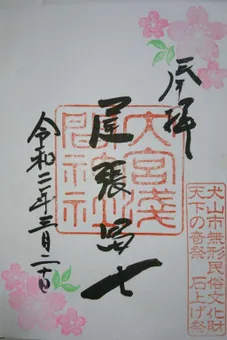 奉拝
大宮浅間神社
尾張冨士
令和二年三月二十日
犬山市無形民俗文化財
天下の奇祭 石上げ祭